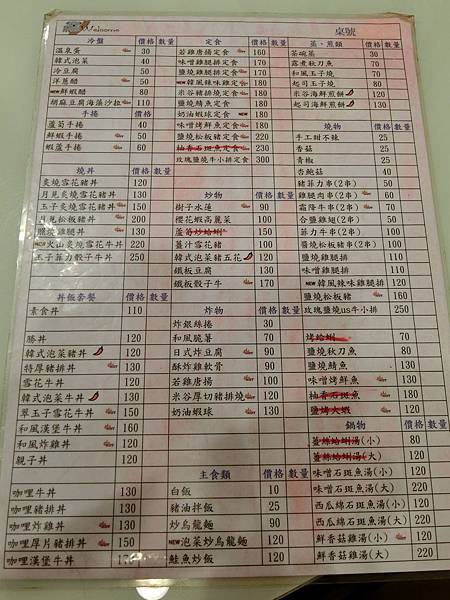 Welcome
桌號
冷盤 價格 數量
溫泉蛋 30
韓式泡菜 40
冷豆腐 50
洋蔥醋 50
NEW鮮蝦醋 80
胡麻豆腐海藻沙拉 110
手捲 價格
蘆筍手捲 40
鮮蝦手捲 50
蝦蘆手捲 60
燒丼
炙燒雪花豬丼 120
月見炙燒雪花豬丼 130
玉子炙燒雪花豬丼 150
月見松板豬丼 200
雞腿丼 120
NEW火山炙燒雪花牛丼 220
玉子菲力骰子牛丼 250
丼飯套餐 價格 數量
素食丼 110
勝丼 120
韓式泡菜豬丼 120
特厚豬排丼 130
雪花牛丼 120
韓式泡菜牛丼 130
草玉子雪花牛丼 150
和風漢堡牛丼 160
和風炸雞丼 120
親子丼 120
咖哩牛丼 130
咖哩豬排丼 130
咖哩炸雞丼 130
咖哩厚片豬排丼 150
咖哩漢堡牛丼 170
定食 價格 數量
若雞唐揚定食 160
味噌雞腿排定食 170
鹽燒雞腿排定食 170
NEW韓風辣味雞定食 180
米谷豬排燒定食 170
鹽燒鯖魚定食 180
奶油蝦球定食 NEW 230
味噌烤鮮魚定食 180
柚香石斑魚定食 230
玫瑰鹽燒牛小排定食 300
炒物 價格 數量
樹子水蓮 90
櫻花蝦高麗菜 100
蘆筍炒蛤蜊 150
薑汁雪花豬 100
韓式泡菜豬五花 120
鐵板豆腐 130
鐵板骰子牛 170
炸物 價格 數量
炸銀絲捲 30
和風脆薯 70
日式炸豆腐 90
酥炸雞軟骨 90
若雞唐揚 100
米谷厚切豬排燒 120
奶油蝦球 150
主食類 價格 數量
白飯 10
豬油拌飯 25
炒烏龍麵 90
NEW泡菜炒烏龍麵 120
鮭魚炒飯 120
蒸、煎類 價格 數量
茶碗蒸 30
露煮秋刀魚 70
和風玉子燒 70
起司玉子燒 80
米谷海鮮煎餅 120
起司海鮮煎餅 130
燒物 價格 數量
手工甜不辣 25
香菇 25
青椒 25
杏鮑菇 40
豬菲力串(2串) 50
雞腿肉串(2串) 60
霜降牛串(2串) 70
合鹽雞翅(2串) 50
菲力牛串(2串) 100
醬燒松板豬串(2串) 100
鹽燒雞腿排 110
味噌雞腿排 110
NEW韓風辣味雞腿排 120
鹽燒松板豬 160
玫瑰鹽燒us牛小排 250
烤蛤蜊 60
鹽燒秋刀魚 80
鹽燒鯖魚 110
味噌烤鮮魚 130
柚香石斑魚 170
鹽烤大蝦 200
鍋物 價格 數量
薑絲蛤蜊湯(小) 80
薑絲蛤蜊湯(大) 120
味噌石斑魚湯(小) 120
味噌石斑魚湯(大) 220
西瓜綿石斑魚湯(小) 120
西瓜綿石斑魚湯(大) 220
鮮香菇雞湯(小) 120
鮮香菇雞湯(大) 220